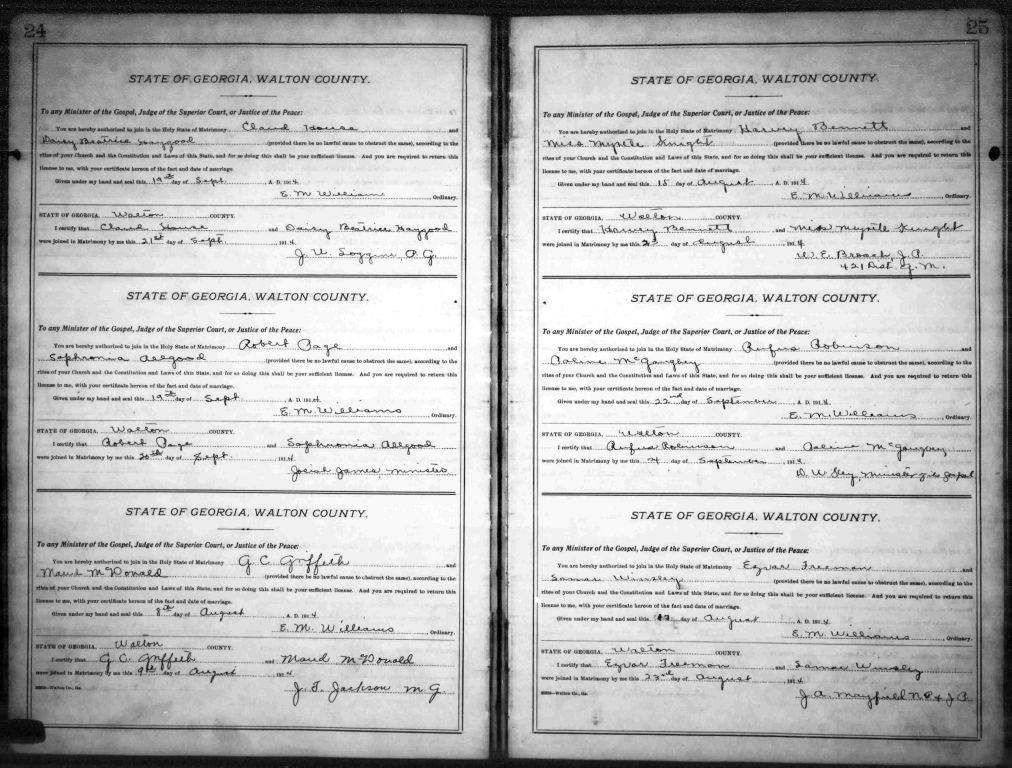 24
STATE OF GEORGIA, WALTON COUNTY.
To any Minister of the Gospel, Judge of the Superior Court, or Justice of the Peace:
You are hereby authorized to join in the Holy State of Matrimony Claud House and
Daisy Beatrice Haygood (provided there be no lawful cause to obstruct the same), according to the
rites of your Church and the Constitution and Laws of this State, and for so doing this shall be your sufficient license. And you are required to return this
license to me, with your certificate hereon of the fact and date of marriage.
Given under my hand and seal this 19th day of Sept. A. D. 1914
E. M. Williams Ordinary.
STATE OF GEORGIA, Walton COUNTY.
I certify that Claud House and Daisy Beatrice Haygood
were joined in Matrimony by me this 21st day of Sept. 1914
J. U.
STATE OF GEORGIA, WALTON COUNTY.
To any Minister of the Gospel, Judge of the Superior Court, or Justice of the Peace:
You are hereby authorized to join in the Holy State of Matrimony Robert Page and
Saphronia Allgood (provided there be no lawful cause to obstruct the same), according to the
rites of your Church and the Constitution and Laws of this State, and for so doing this shall be your sufficient license. And you are required to return this
license to me, with your certificate hereon of the fact and date of marriage.
Given under my hand and seal this 19th day of Sept A. D. 1914
E. M. Williams, Ordinary.
STATE OF GEORGIA, Walton COUNTY.
I certify that Robert Page and Saphronia Allgood
were joined in Matrimony by me this 20th day of Sept. 1914
Josiah James, Minister
STATE OF GEORGIA, WALTON COUNTY.
To any Minister of the Gospel, Judge of the Superior Court, or Justice of the Peace:
You are hereby authorized to join in the Holy State of Matrimony G. C. Griffeth and
Maud McDonald (provided there be no lawful cause to obstruct the same), according to the
rites of your Church and the Constitution and Laws of this State, and for so doing this shall be your sufficient license. And you are required to return this
license to me, with your certificate hereon of the fact and date of marriage.
Given under my hand and seal this 8th day of August A. D. 1914
E. M. Williams Ordinary.
STATE OF GEORGIA, Walton COUNTY.
I certify that G. C. Griffeth and Maud McDonald
were joined in Matrimony by me this 9th day of August 1914
J. T. Jackson M. G.
25
STATE OF GEORGIA, WALTON COUNTY.
To any Minister of the Gospel, Judge of the Superior Court, or Justice of the Peace:
You are hereby authorized to join in the Holy State of Matrimony Harvey Bennett and
Miss Myrtle Knight (provided there be no lawful cause to obstruct the same), according to the
rites of your Church and the Constitution and Laws of this State, and for so doing this shall be your sufficient license. And you are required to return this
license to me, with your certificate hereon of the fact and date of marriage.
Given under my hand and seal this 15 day of August, A. D. 1914
E. M. Williams Ordinary.
STATE OF GEORGIA, Walton COUNTY.
I certify that Harvey Bennett and Miss Myrtle Knight
were joined in Matrimony by me this day of August 1914
W. E. Broach, J. P.
421 Dist. G. M.
STATE OF GEORGIA, WALTON COUNTY.
To any Minister of the Gospel, Judge of the Superior Court, or Justice of the Peace:
You are hereby authorized to join in the Holy State of Matrimony Rufus Robinson and
McGaughey (provided there be no lawful cause to obstruct the same), according to the
rites of your Church and the Constitution and Laws of this State, and for so doing this shall be your sufficient license. And you are required to return this
license to me, with your certificate hereon of the fact and date of marriage.
Given under my hand and seal this 22nd day of September A. D. 1914
E. M. Williams Ordinary.
STATE OF GEORGIA, Walton COUNTY.
I certify that Rufus Robinson and McGaughey
were joined in Matrimony by me this day of September 1914
D. W. Minister of the Gospel
STATE OF GEORGIA, WALTON COUNTY.
To any Minister of the Gospel, Judge of the Superior Court, or Justice of the Peace:
You are hereby authorized to join in the Holy State of Matrimony Freeman and
(provided there be no lawful cause to obstruct the same), according to the
rites of your Church and the Constitution and Laws of this State, and for so doing this shall be your sufficient license. And you are required to return this
license to me, with your certificate hereon of the fact and date of marriage.
Given under my hand and seal this day of August A. D. 1914
E. M. Williams Ordinary.
STATE OF GEORGIA, Walton COUNTY.
I certify that Freeman and
were joined in Matrimony by me this 23rd day of August 1914
J. A. Mayfield N.P. & J.P.